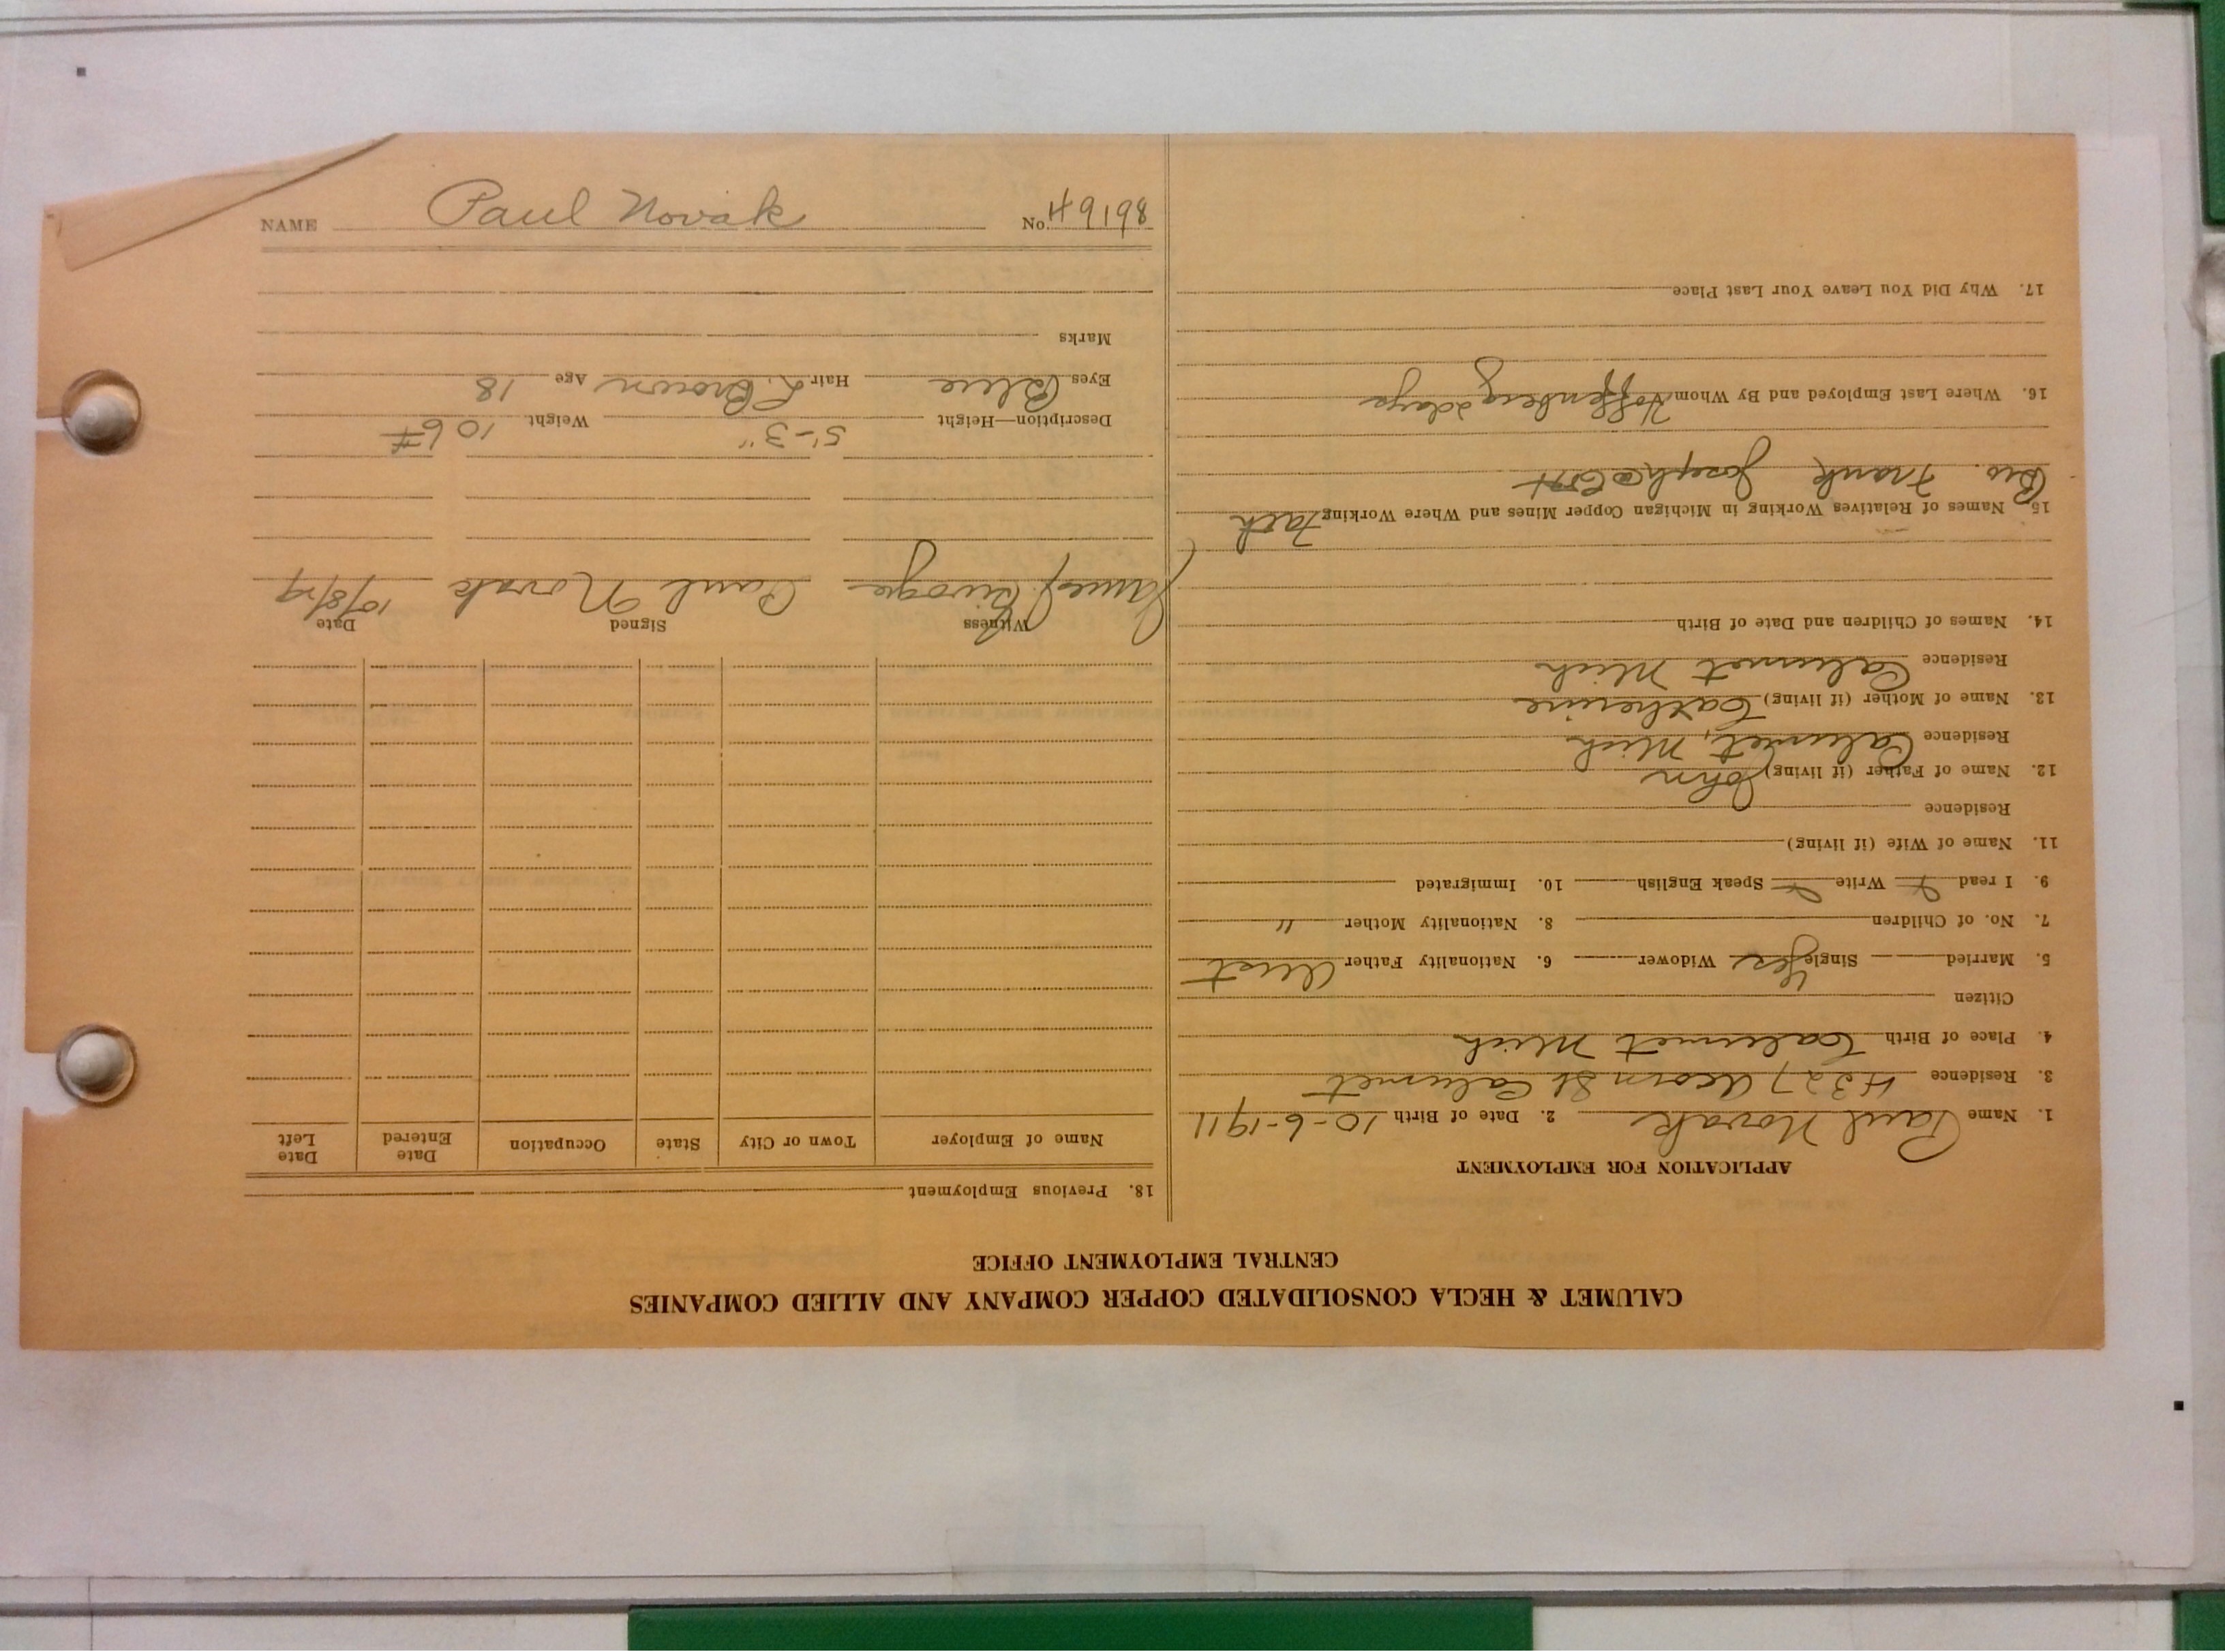 NAME Paul Novak No. 49198
CALUMET & HECLA CONSOLIDATED COPPER COMPANY AND ALLIED COMPANIES
CENTRAL EMPLOYMENT OFFICE
APPLICATION FOR EMPLOYMENT
1. Name Paul Novak 2. Date of Birth 10-6-1911
3. Residence 4327 Acorn St Calumet
4. Place of Birth Calumet Mich
Citizen
5. Married Single Yes Widower 6. Nationality Father Aust
7. No. of Children 8. Nationality Mother "
9. I read Write Speak English 10. Immigrated
11. Name of Wife (if living)
Residence
12. Name of Father (if living) John
Residence Calumet, Mich
13. Name of Mother (if living) Catherine
Residence Calumet Mich
14. Names of Children and Date of Birth
15. Names of Relatives Working in Michigan Copper Mines and Where Working Fath
Bro. Frank Joseph
16. Where Last Employed and By Whom Hoffenberg 2 days
17. Why Did You Leave Your Last Place
18. Previous Employment
Name of Employer Town or City State Occupation Date Entered Date Left
Witness Signed Date
James Paul Novak 10/8/29
Description—Height 5'-3" Weight 106#
Eyes Blue Hair L. Brown Age 18
Marks